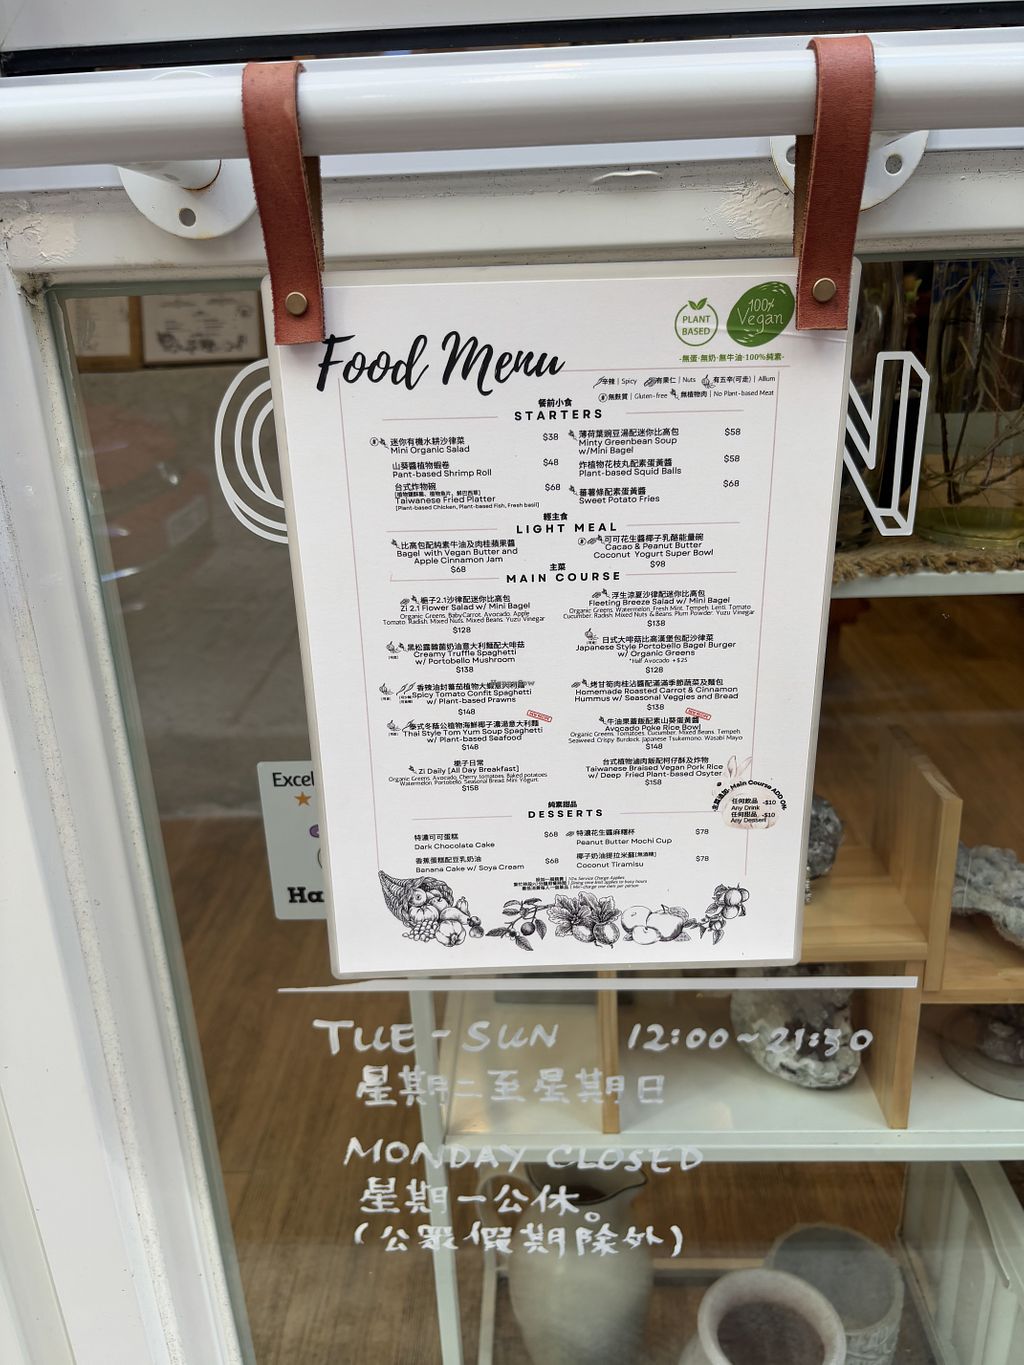 PLANT
BASED
100%
Vegan
·無蛋·無奶·無牛油·100%純素·
Food Menu
辛辣 | Spicy 有果仁 | Nuts 有五辛(可走) | Allium
無麩質 | Gluten-free 無植物肉 | No Plant-based Meat
餐前小食
STARTERS
迷你有機水耕沙律菜 $38
Mini Organic Salad
山葵醬植物蝦卷 $48
Pant-based Shrimp Roll
台式炸物碗 $68
Taiwanese Fried Platter
(Plant-based Chicken, Plant-based Fish, Fresh basil)
薄荷葉豌豆湯配迷你比高包 $58
Minty Greenbean Soup
w/Mini Bagel
炸植物花枝丸配素蛋黃醬 $58
Plant-based Squid Balls
蕃薯條配素蛋黃醬 $68
Sweet Potato Fries
輕主食
LIGHT MEAL
比高包配純素牛油及肉桂蘋果醬
Bagel with Vegan Butter and
Apple Cinnamon Jam
$68
可可花生醬椰子乳酪能量碗
Cacao & Peanut Butter
Coconut Yogurt Super Bowl
$98
主菜
MAIN COURSE
梔子2.1沙律配迷你比高包
Zi 2.1 Flower Salad w/ Mini Bagel
Organic Greens, BabyCarrot, Avocado, Apple
Tomato, Radish, Mixed Nuts, Mixed Beans, Yuzu Vinegar
$128
浮生涼夏沙律配迷你比高包
Fleeting Breeze Salad w/ Mini Bagel
Organic Greens, Watermelon, Fresh Mint, Tempeh, Lenti, Tomato
Cucumber, Radish, Mixed Nuts & Beans, Plum Powder, Yuzu Vinegar
$138
黑松露蘑菌奶油意大利麵配大啡菇
Creamy Truffle Spaghetti
w/ Portobello Mushroom
$138
日式大啡菇比高漢堡包配沙律菜
Japanese Style Portobello Bagel Burger
w/ Organic Greens
*Half Avocado +$25
$128
香辣油封蕃茄植物大蝦意大利麵
Spicy Tomato Confit Spaghetti
w/ Plant-based Prawns
$148
烤甘筍肉桂沾醬配滿滿季節蔬菜及麵包
Homemade Roasted Carrot & Cinnamon
Hummus w/ Seasonal Veggies and Bread
$138
泰式冬蔭公植物海鮮椰子濃湯意大利麵
Thai Style Tom Yum Soup Spaghetti
w/ Plant-based Seafood
$148
牛油果蓋飯配素山葵蛋黃醬
Avocado Poke Rice Bowl
Organic Greens, Tomatoes, Cucumber, Mixed Beans, Tempeh,
Seaweed, Crispy Burdock, Japanese Tsukemono, Wasabi Mayo
$148
梔子日常
Zi Daily [All Day Breakfast]
Organic Greens, Avocado, Cherry tomatoes, Baked potatoes
Watermelon, Portobello, Seasonal Bread, Mini Yogurt
$158
台式植物滷肉飯配柯仔酥及炸物
Taiwanese Braised Vegan Pork Rice
w/ Deep Fried Plant-based Osyter
$158
主菜追加· Main Course ADD ON
任何飲品 -$10
Any Drink
任何甜品 -$10
Any Dessert
純素甜品
DESSERTS
特濃可可蛋糕 $68
Dark Chocolate Cake
香蕉蛋糕配豆乳奶油 $68
Banana Cake w/ Soya Cream
特濃花生醬麻糬杯 $78
Peanut Butter Mochi Cup
椰子奶油提拉米蘇(無酒精) $78
Coconut Tiramisu
設加一服務費 | 10% Service Charge Applies
Excel
Ha
TUE-SUN 12:00~21:30
星期二至星期日
MONDAY CLOSED
星期一公休。
(公眾假期除外)